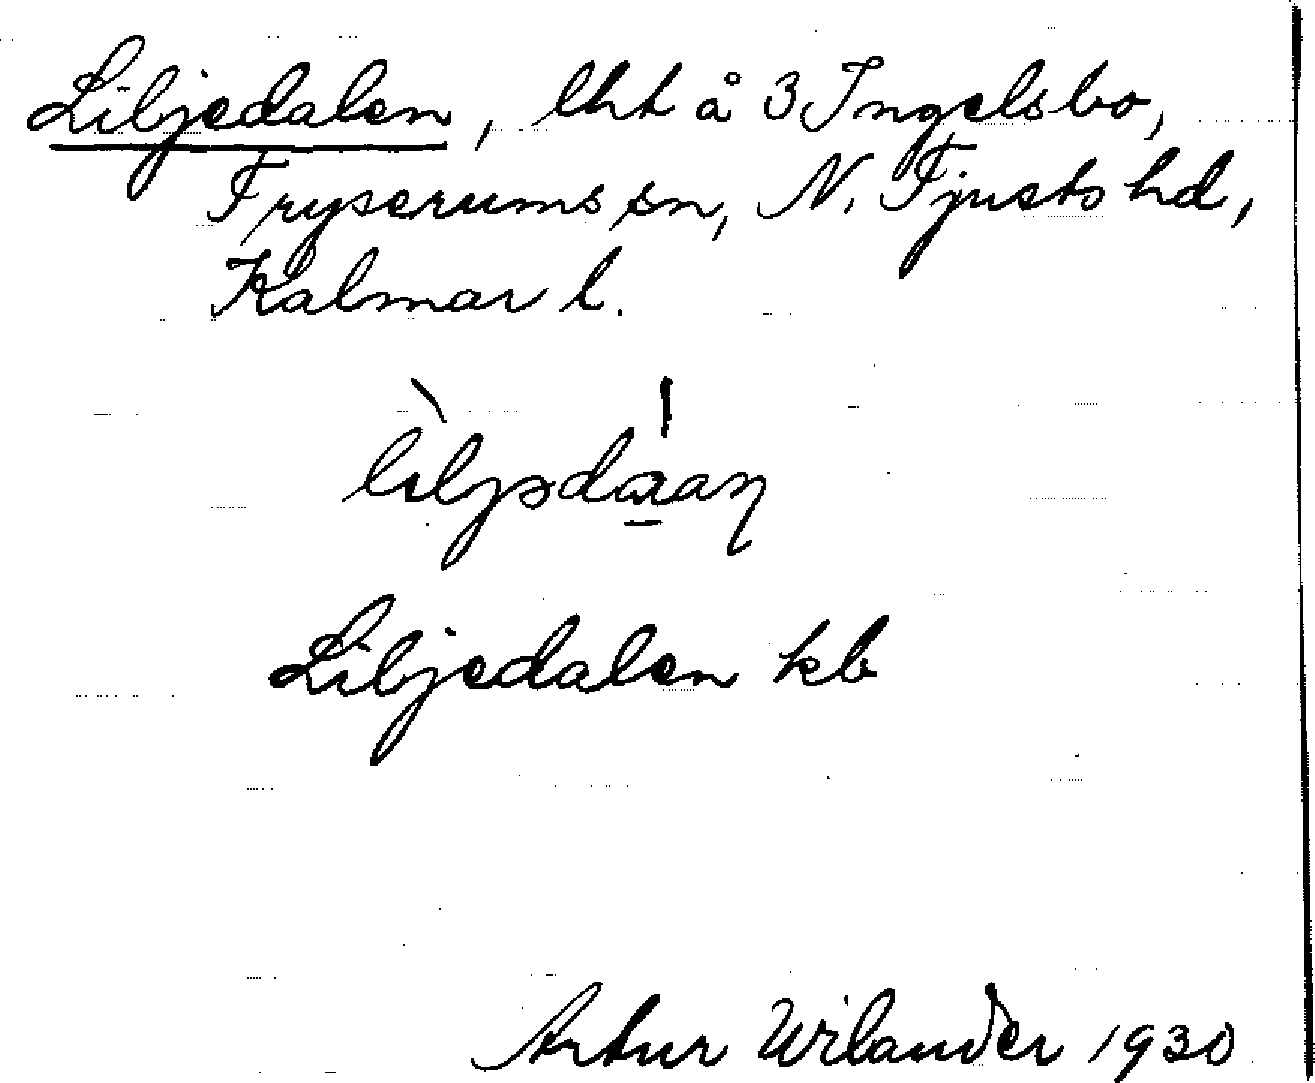 Liljedalen, lht å 3 Ingelsbo,
Tryserums sn, N. Tjusts hd,
Kalmar l.
Liljedalen kb
Artur Wilander 1930